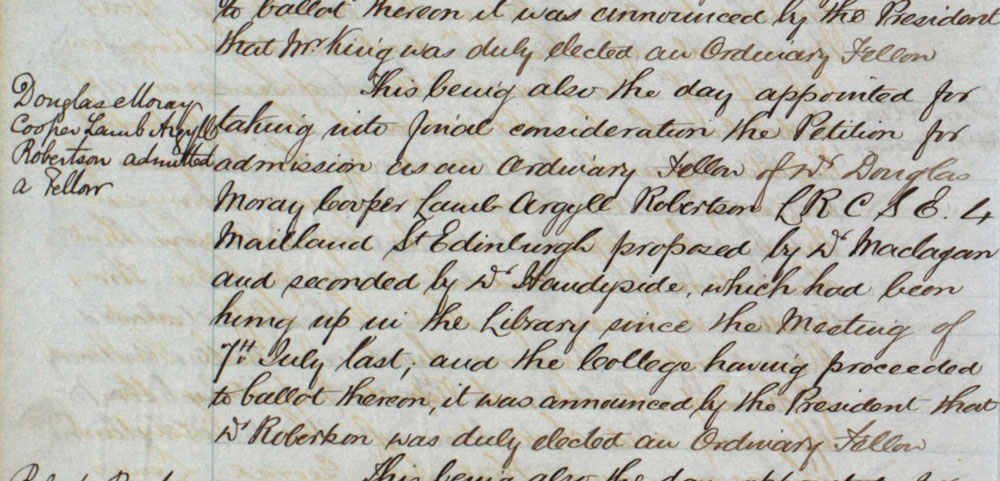 to ballot thereon it was announced by the President
that Mr King was duly elected an Ordinary Fellow
Douglas Moray
Cooper Lamb Argyll
Robertson admitted
a Fellow
This being also the day appointed for
taking into final consideration the Petition for
admission as an Ordinary Fellow of Dr Douglas
Moray Cooper Lamb Argyll Robertson L R C S E. 4
Maitland St Edinburgh proposed by Dr Maclagan
and seconded by Dr Handyside, which had been
hung up in the Library since the Meeting of
7th July last, and the College having proceeded
to ballot thereon, it was announced by the President that
Dr Robertson was duly elected an Ordinary Fellow
This being also the day appointed for